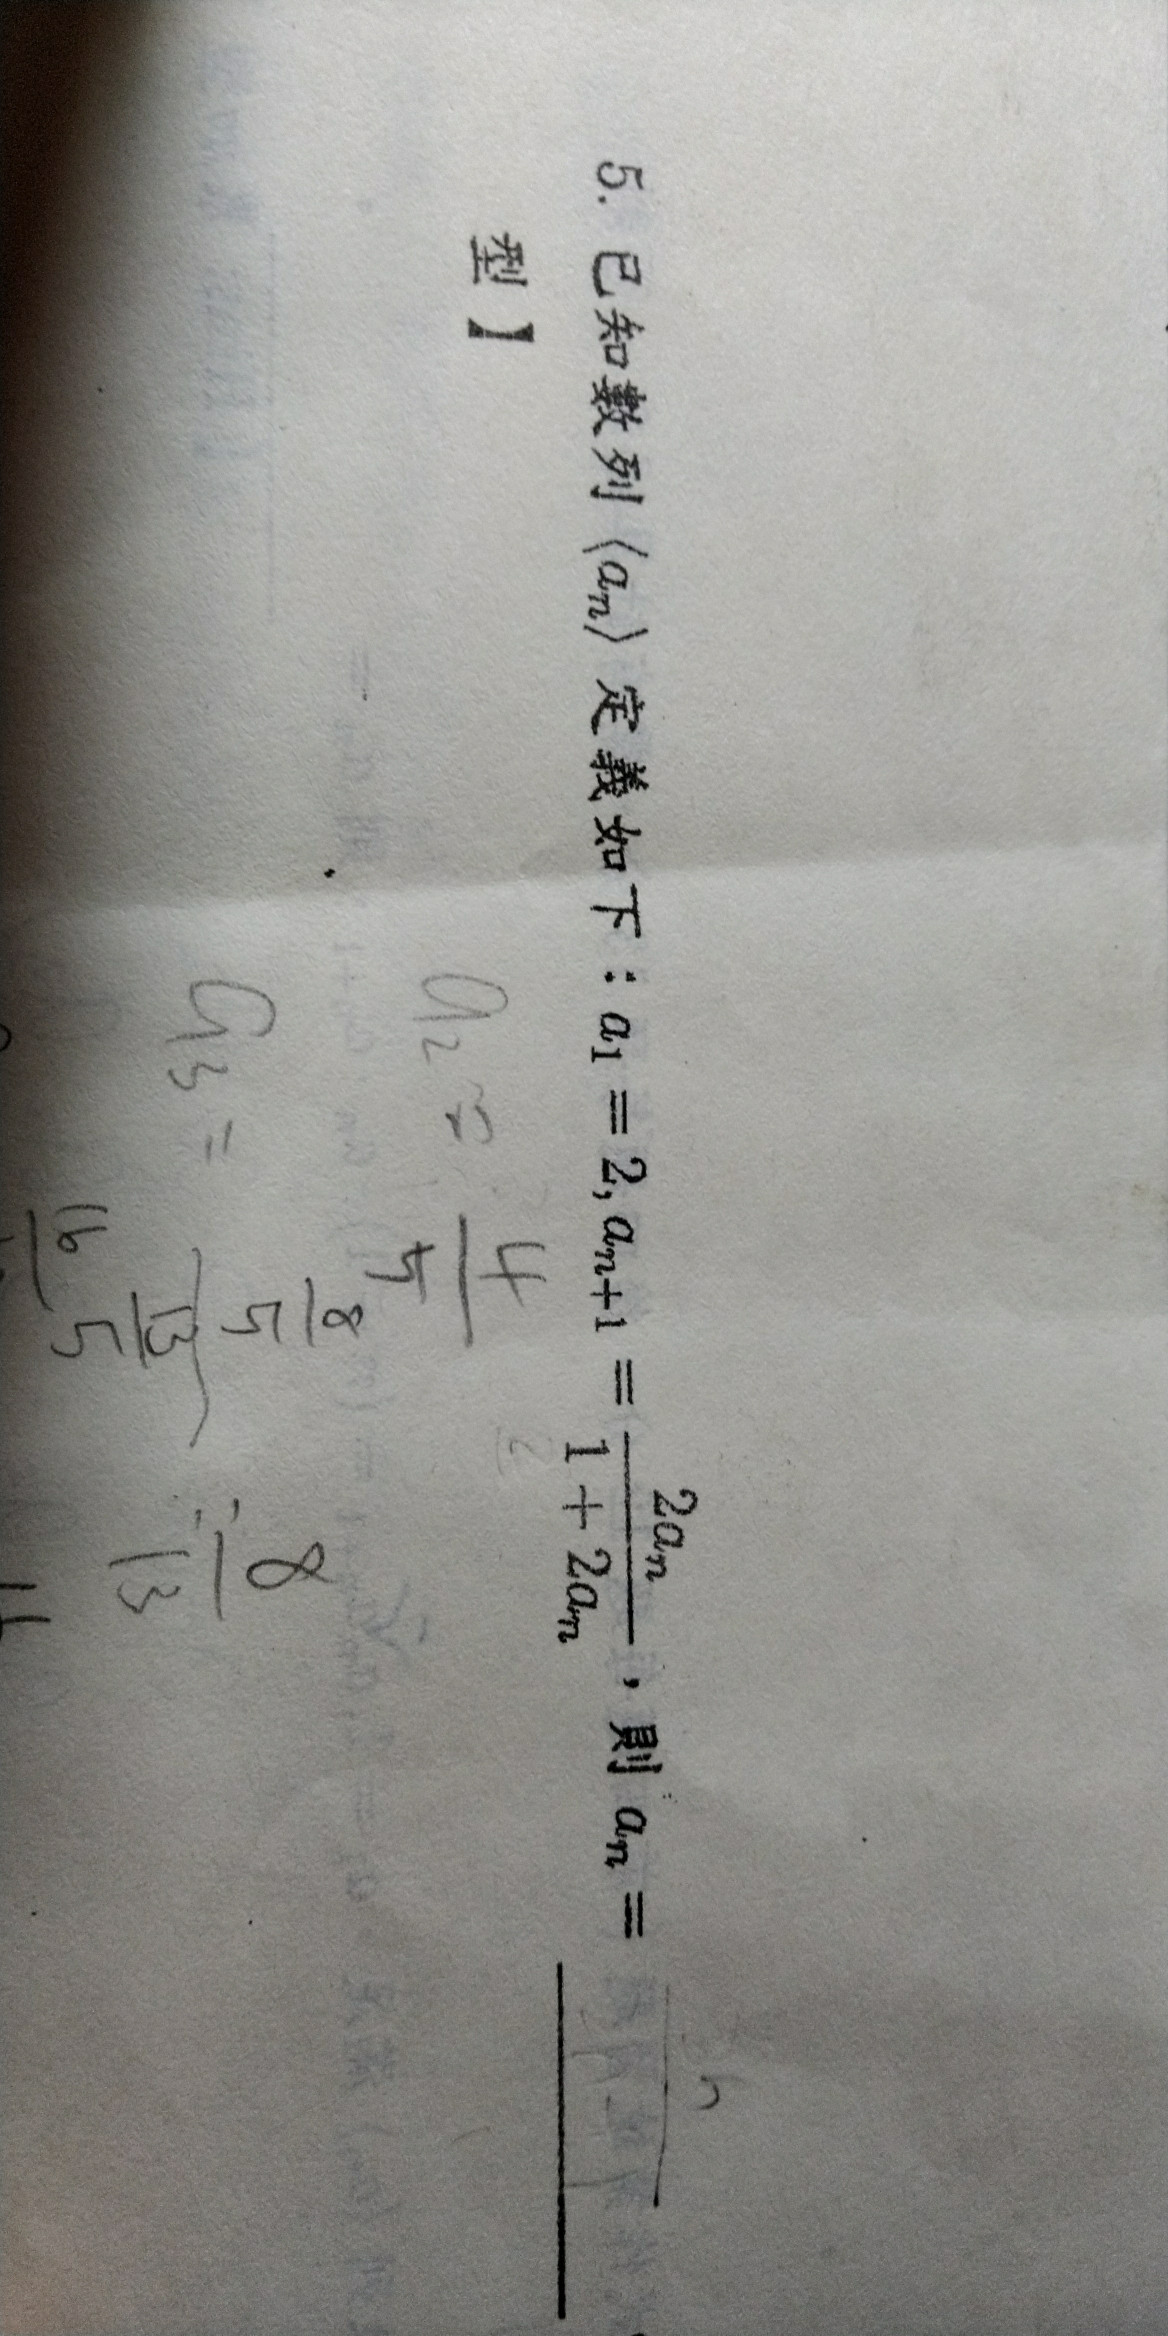 5. 已知數列⟨aₙ⟩定義如下：a₁ = 2, aₙ₊₁ = 2aₙ / (1 + 2aₙ)，則 aₙ =
型】
a₂ = 4/5
a₃ = (8/5) / (13/5) = 8/13
16